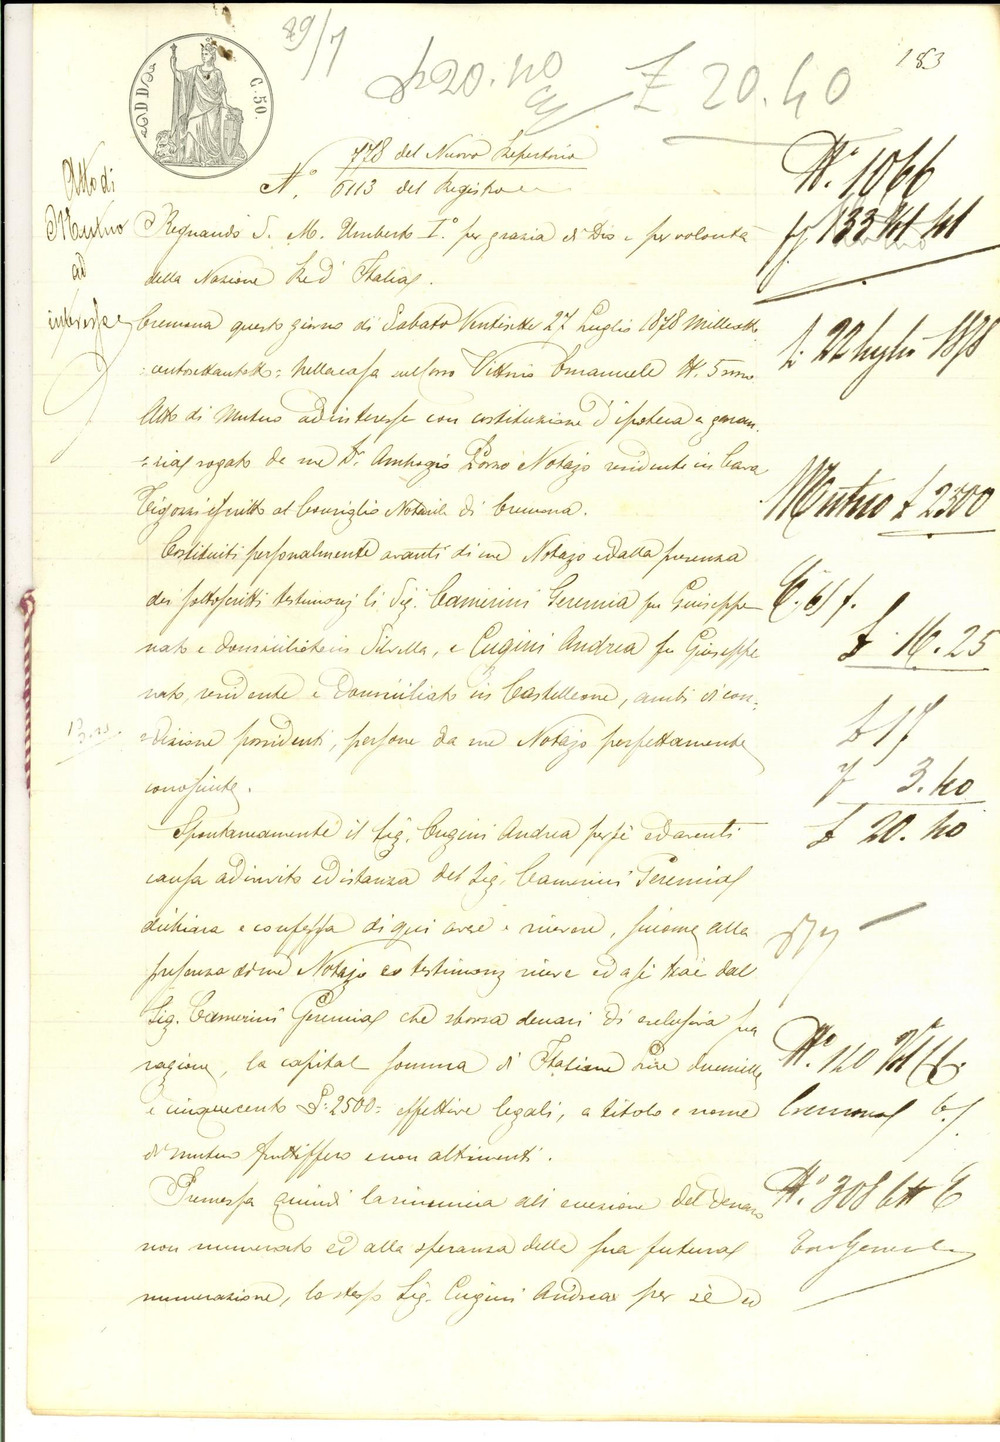 89/7
£ 20.40
£ 20.40
183
C. 50.
778 del Nuovo Repertorio
N.° 6113 del Registro
Atto di
Mutuo
ad
interesse
Regnando S. M. Umberto I.° per grazia di Dio e per volontà
della Nazione Re d'Italia.
Cremona questo giorno di Sabato Ventisette 27 Luglio 1878 Milleotto
centosettantotto: nella casa sul Corso Vittorio Emanuele N. 5
Atto di Mutuo ad interesse con costituzione d'ipoteca a garan
zia rogato da me Dr. Ambrogio Notajo residente in Cava
Tigozzi iscritto al Consiglio Notarile di Cremona.
Costituiti personalmente avanti di me Notajo ed alla presenza
dei sottoscritti testimonj li Sig. Camerini Geremia fu Giuseppe
nato e domiciliato in Silvella, e Cugini Andrea fu Giuseppe
nato, residente e domiciliato in Castelleone, ambi di con:
dizione possidenti, persone da me Notajo perfettamente
conosciute.
Spontaneamente il Sig. Cugini Andrea per sé ed aventi
causa ad invito ed istanza del Sig. Camerini Geremia
dichiara e confessa di qui avere e ricevere, siccome alla
presenza di me Notajo e testimonj riceve ed a sé trae dal
Sig. Camerini Geremia che sborsa denari di esclusiva sua
ragione, la capital somma di Italiane Lire duemille
e cinquecento £: 2500: effettive legali, a titolo e nome
di mutuo fruttifero e non altrimenti.
Premessa quindi la rinuncia all'eccezione del denaro
non numerato ed alla speranza della sua futura
numerazione, lo stesso Sig. Cugini Andrea per sé ed
N.° 1066
22 luglio 1878
Mutuo £ 2500
£ 16.25
£ 17
3.40
£ 20.40
N.° 140
Cremona
N.° 308